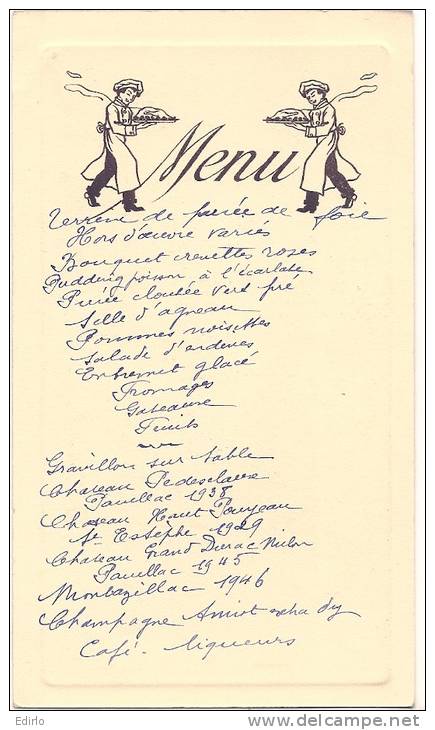 Menu
Terrine de purée de foie
Hors d'œuvre variés
Bouquet crevettes roses
Pudding poisson à l'écarlate
Purée cloutée vert pré
Selle d'agneau
Pommes noisettes
Salade d'endives
Entremet glacé
Fromages
Gateaux
Fruits
Gravillon sur table
Chateau Pedesclaux
Pauillac 1938
Chateau Haut
St Estèphe 1929
Chateau Grand Duroc Milon
Pauillac 1945
Monbazillac 1946
Champagne Amiot extra dry
Café - liqueurs
Edirlo
www.delcampe.net